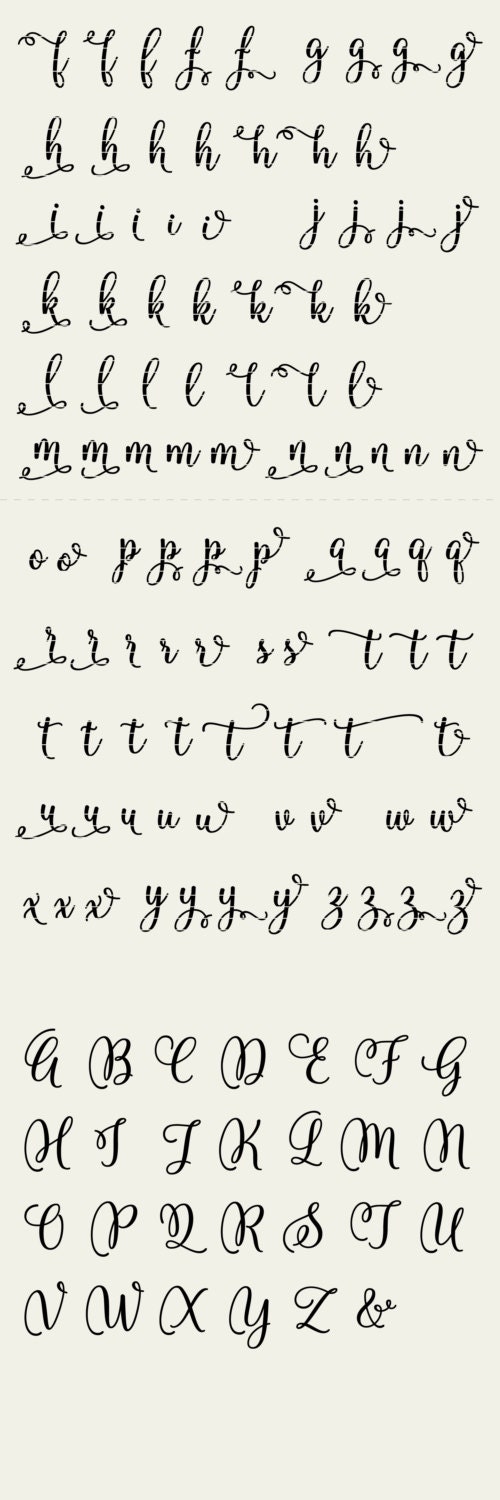 f f f f f g g g g
h h h h h h h
i i i i i j j j j
k k k k k k k
l l l l l l l
m m m m m n n n n n
o o p p p p q q q q
r r r r r s s t t t
t t t t t t t t
u u u u u v v w w
x x x y y y y z z z z
A B C D E F G
H I J K L M N
O P Q R S T U
V W X Y Z &